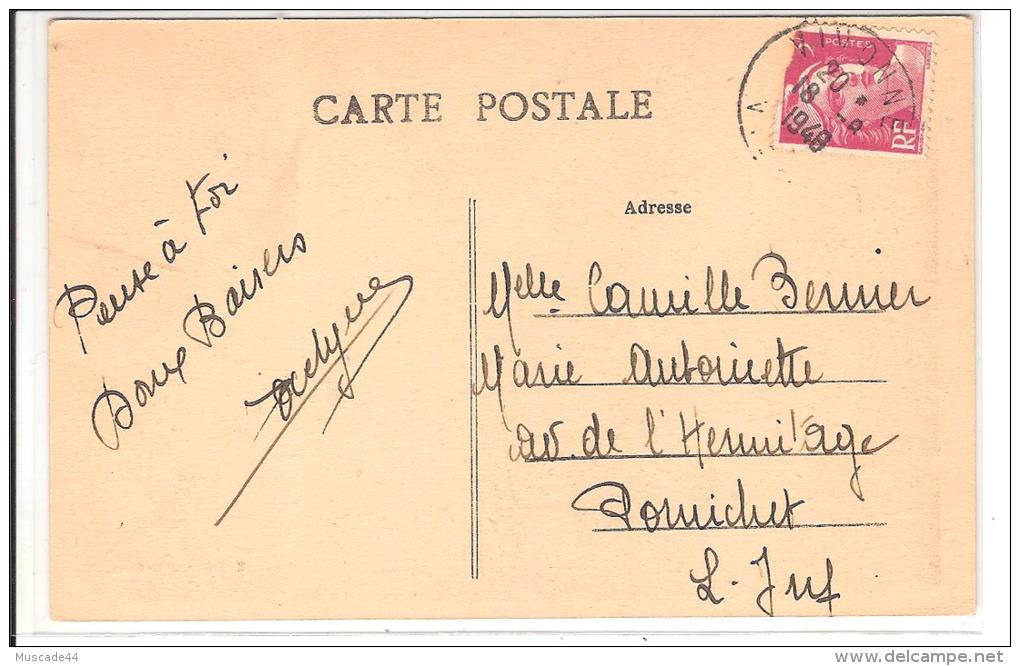 CARTE POSTALE
POSTES
RF
20 *
18 - 8
1948
Pense à toi
Doux Baisers
Jocelyne
Adresse
Melle Camille Bernier
Marie Antoinette
av. de l'Hermitage
Pornichet
L. Inf
Muscade44
delcampe.net